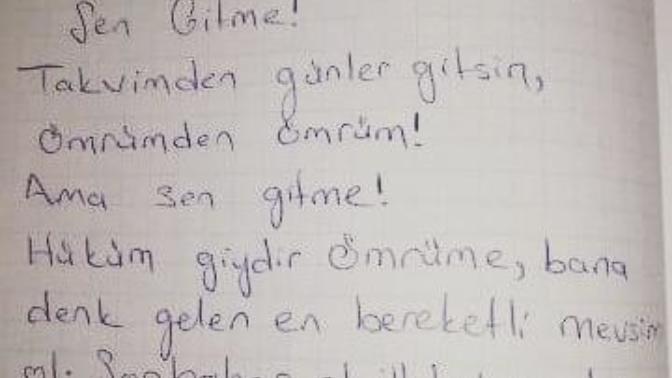 Sen Gitme!
Takvimden günler gitsin,
Ömrümden ömrüm!
Ama sen gitme!
Hüküm giydir Ömrüme, bana
denk gelen en bereketli mevsim